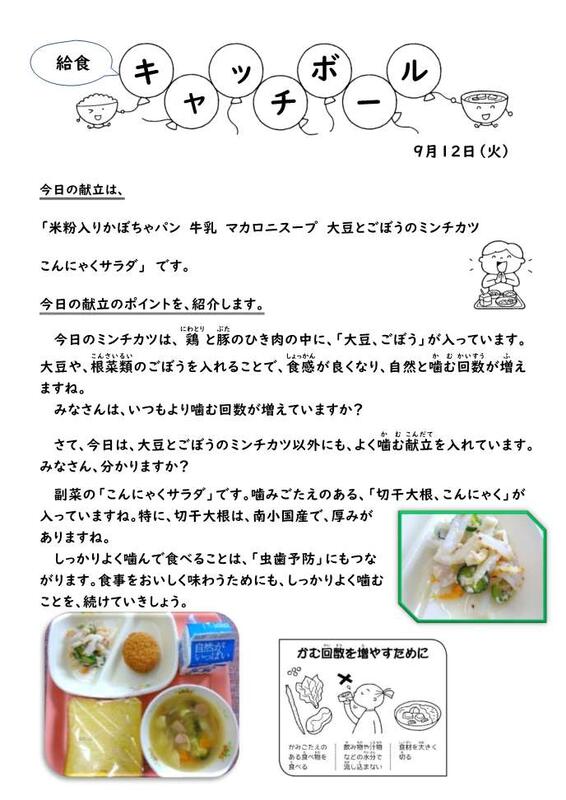 給食
キャッチボール
9月12日(火)
今日の献立は、
「米粉入りかぼちゃパン 牛乳 マカロニスープ 大豆とごぼうのミンチカツ
こんにゃくサラダ」 です。
今日の献立のポイントを、紹介します。
今日のミンチカツは、鶏と豚のひき肉の中に、「大豆、ごぼう」が入っています。
大豆や、根菜類のごぼうを入れることで、食感が良くなり、自然と噛む回数が増え
ますね。
みなさんは、いつもより噛む回数が増えていますか？
さて、今日は、大豆とごぼうのミンチカツ以外にも、よく噛む献立を入れています。
みなさん、分かりますか？
副菜の「こんにゃくサラダ」です。噛みごたえのある、「切干大根、こんにゃく」が
入っていますね。特に、切干大根は、南小国産で、厚みが
ありますね。
しっかりよく噛んで食べることは、「虫歯予防」にもつな
がります。食事をおいしく味わうためにも、しっかりよく噛む
ことを、続けていきましょう。
自然が
いっぱい
かむ回数を増やすために
かみごたえの
ある食べ物を
食べる
飲み物や汁物
などの水分で
流し込まない
食材を大きく
切る